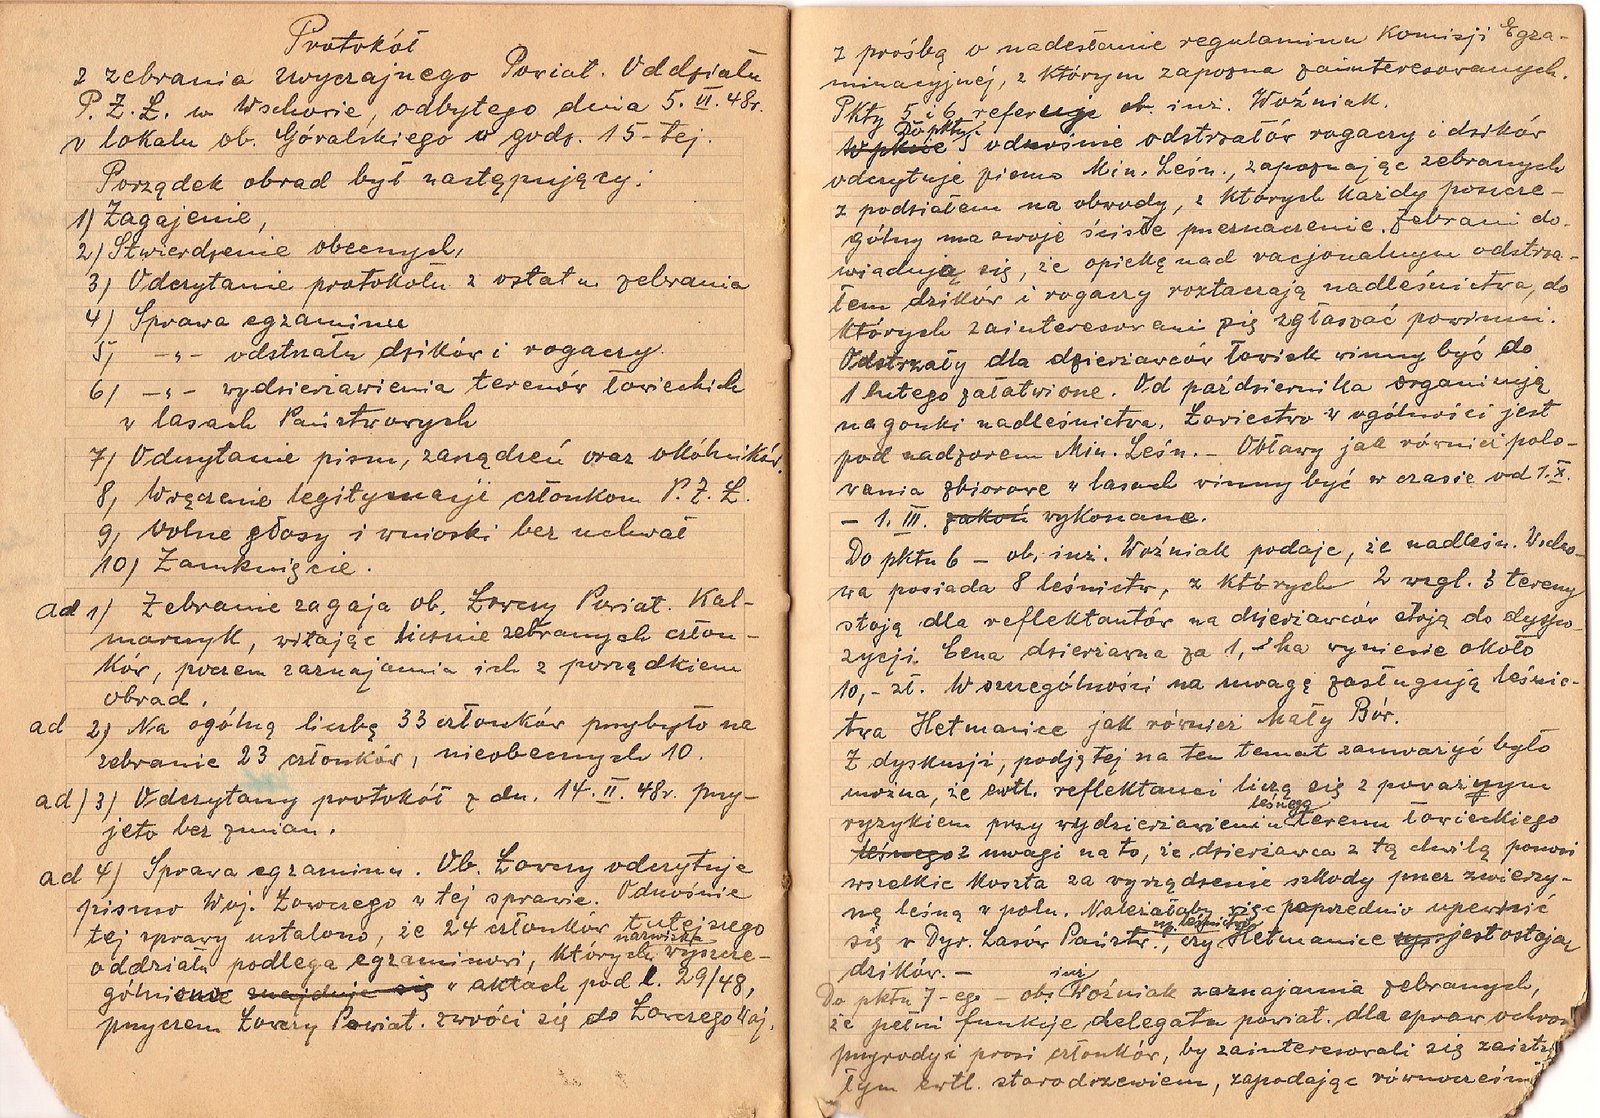 Protokół
z zebrania zwyczajnego Powiat. Oddziału
P.Z.Ł. w Wschowie, odbytego dnia 5. VI. 48r.
w lokalu ob. Góralskiego o godz. 15-tej.
Porządek obrad był następujący:
1) Zagajenie,
2) Stwierdzenie obecnych,
3) Odczytanie protokołu z ostatn zebrania
4) Sprawa egzaminu
5) -"- odstrzału dzików i rogaczy
6) -"- wydzierżawienia terenów łowieckich
w lasach Państwowych
7) Odczytanie pism, zarządzeń oraz okólników.
8) Wręczenie legitymacji członkom P.Z.Ł.
9) Wolne głosy i wnioski bez uchwał
10) Zamknięcie.
ad 1) Zebranie zagaja ob. Łowczy Powiat. Kal-
marczyk, witając licznie zebranych człon-
ków, poczem zaznajamia ich z porządkiem
obrad.
ad 2) Na ogólną liczbę 33 członków przybyło na
zebranie 23 członków, nieobecnych 10.
ad) 3) Odczytany protokół z dn. 14. II. 48r. przy-
jęto bez zmian.
ad 4) Sprawa egzaminu. Ob. Łowczy odczytuje
pismo Woj. Łowczego w tej sprawie. Odnośnie
tej sprawy ustalono, że 24 członków tutejszego
oddziału podlega egzaminowi, których nazwiska wyszcze-
gólnione znajduje się w aktach pod l. 29/48,
przyczem Łowczy Powiat. zwróci się do Łowczego Woj.
z prośbą o nadesłanie regulaminu Komisji Egza-
minacyjnej, z którym zapozna zainteresowanych.
Pkty 5 i 6 referuje ob. inż. Woźniak.
W pkcie Do pktu 5 odnośnie odstrzałów rogaczy i dzików
odczytuje pismo Min. Leśn., zapoznając zebranych
z podziałem na obwody, z których każdy poszcze-
gólny ma swoje ściśle przeznaczenie. Zebrani do-
wiadują się, że opiekę nad racjonalnym odstrza-
łem dzików i rogaczy roztaczają nadleśnictwa, do
których zainteresowani się zgłaszać powinni.
Odstrzały dla dzierżawców łowisk winny być do
1 lutego załatwione. Od października organizują
nagonki nadleśnictwa. Łowiectwo w ogólności jest
pod nadzorem Min. Leśn. - Obławy jak również polo-
wania zbiorowe w lasach winny być w czasie od 1. X.
- 1. III. wykonane.
Do pktu 6 - ob. inż. Woźniak podaje, że nadleśn. Wscho-
wa posiada 8 leśnictw, z których 2 wzgl. 3 tereny
stoją dla reflektantów na dzierżawców stoją do dyspo-
zycji. Cena dzierżawna za 1,- ha wyniesie około
10,- zł. W szczególności na uwagę zasługują leśnic-
twa Hetmanice jak również Mały Bór.
Z dyskusji, podjętej na ten temat zauważyć było
można, że ewtl. reflektanci liczą się z poważnym
ryzykiem przy wydzierżawieniu leśnego terenu łowieckiego
leśnego z uwagi na to, że dzierżawca z tą chwilą ponosi
wszelkie koszta za wyrządzenie szkody przez zwierzy-
nę leśną w polu. Należałoby więc poprzednio upewnić
się w Dyr. Lasów Państw., czy np. leśnictwo Hetmanice jest ostoją
dzików. -
Do pktu 7-ego - ob. inż. Woźniak zaznajamia zebranych,
że pełni funkcje delegata powiat. dla spraw ochrony
przyrody i prosi członków, by zainteresowali się
łym ewtl. starodrzewiem, zapodając równocześni